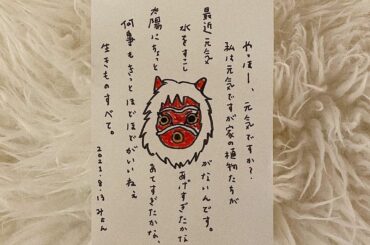 やっほー、元気ですか?
私は元気ですが家の植物たちが
最近元気がないんです。
水をすこしあげすぎたかな
太陽にちょっとあてすぎたかな、
何事もきっとほどほどがいいねぇ
生きものすべて。
2023.8.13